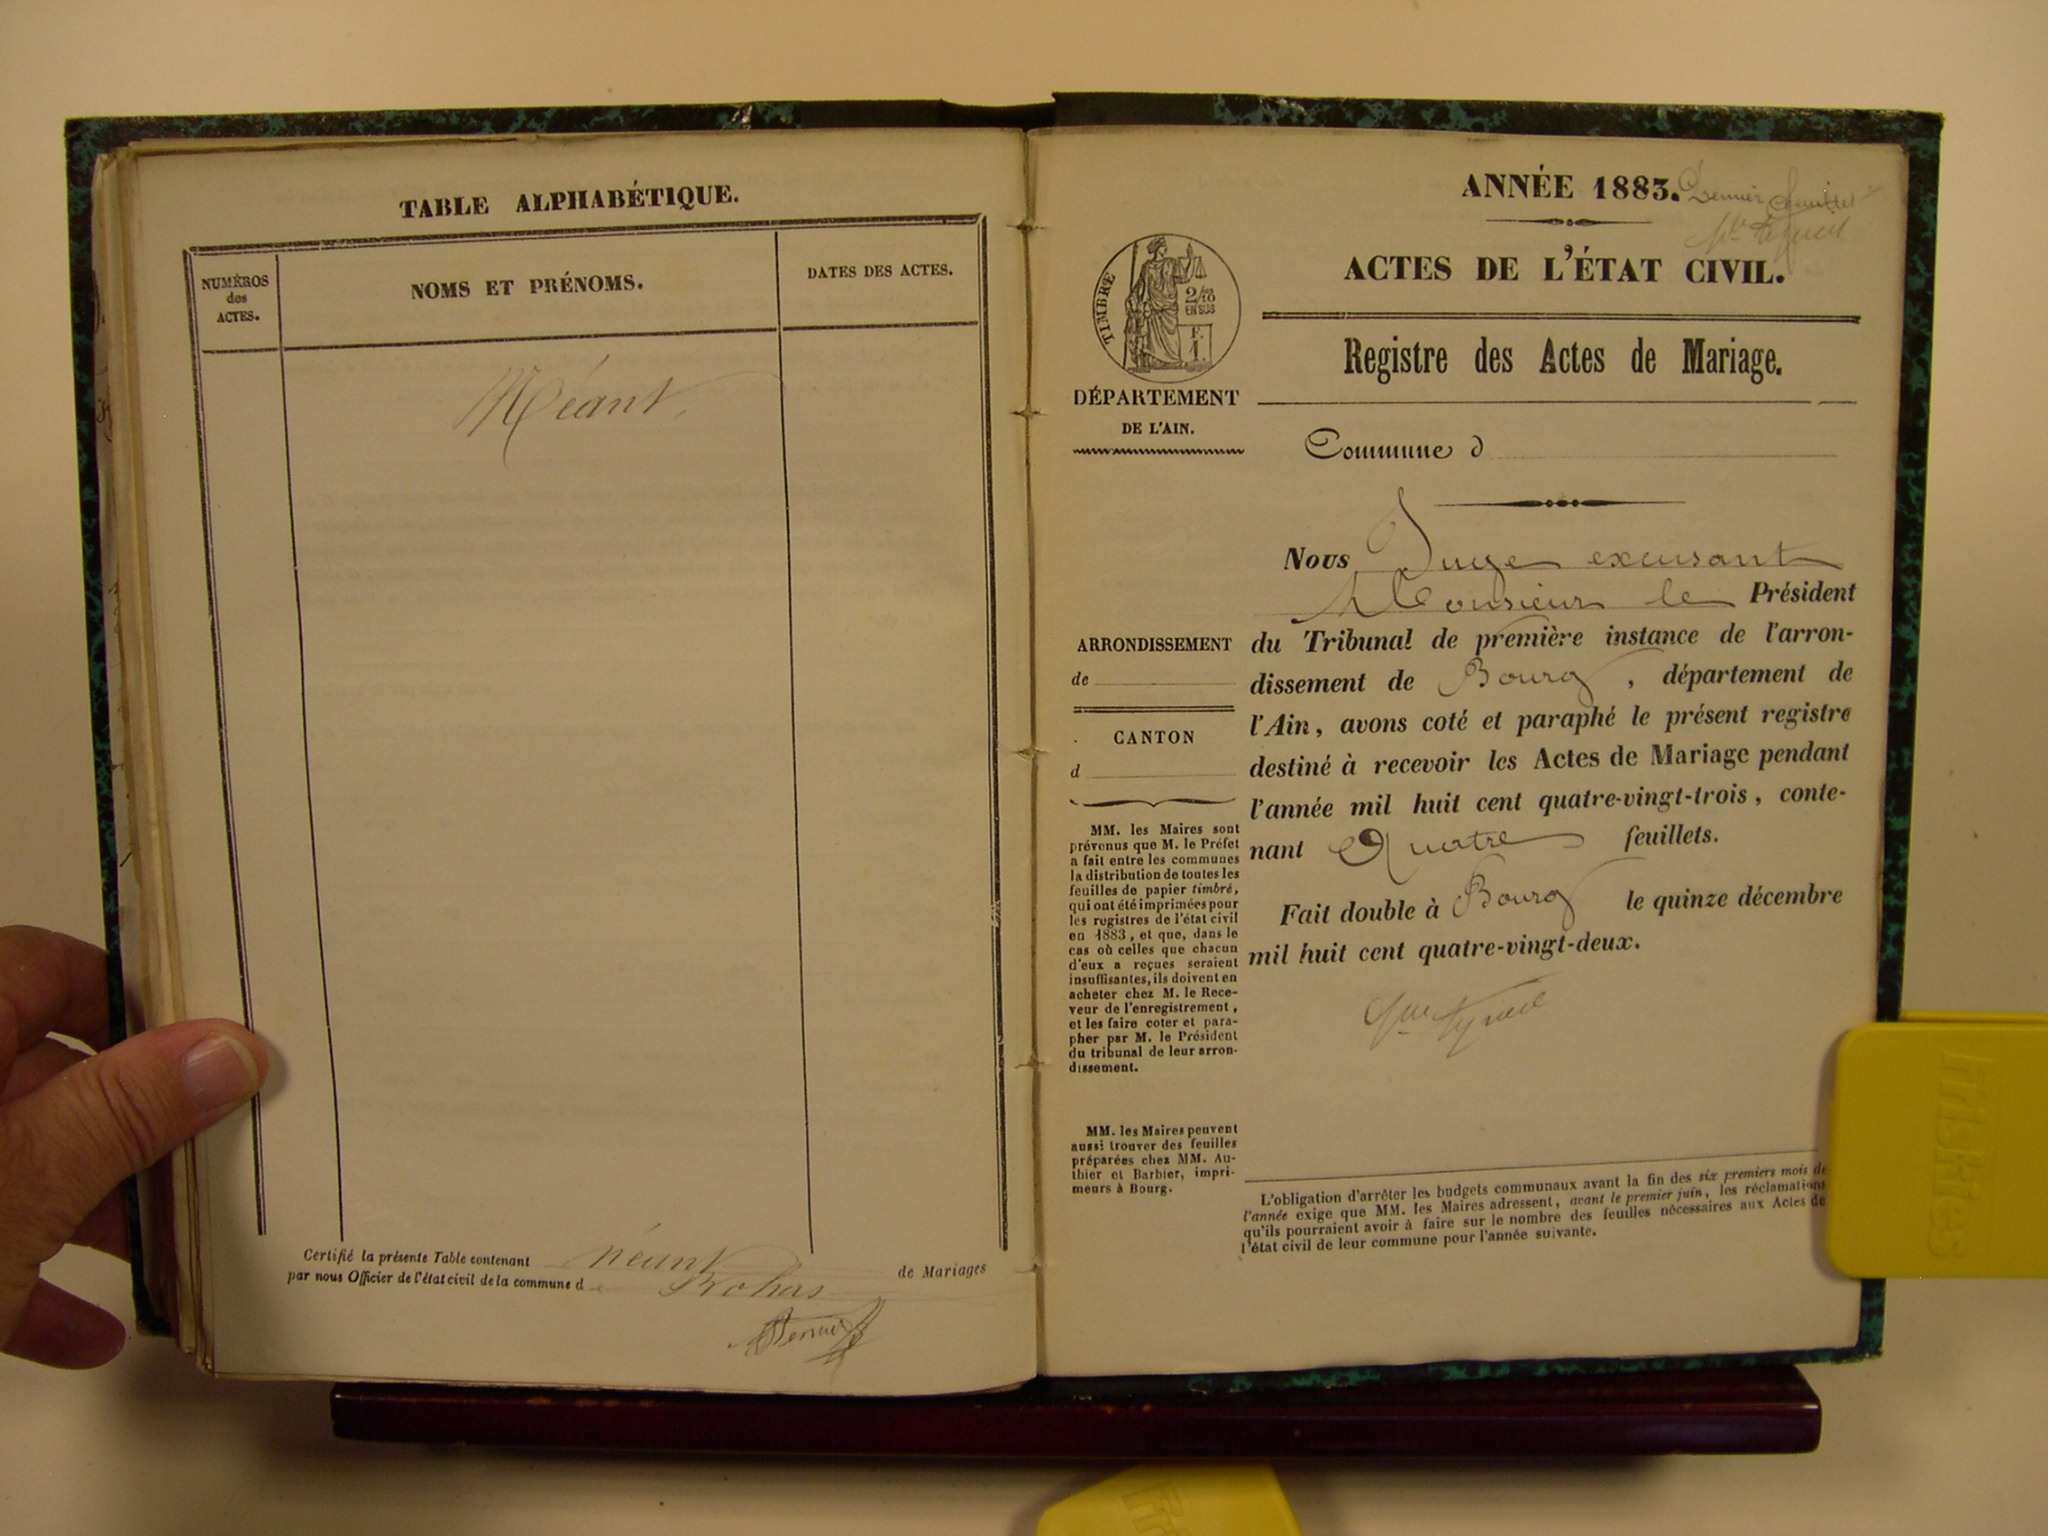 TABLE ALPHABÉTIQUE.
NUMÉROS
des
ACTES.
NOMS ET PRÉNOMS.
DATES DES ACTES.
Néant
Certifié la présente Table contenant néant de Mariages
par nous Officier de l'état civil de la commune de Rohas
ANNÉE 1883.
Premier feuillet
ACTES DE L'ÉTAT CIVIL.
TIMBRE
2/10
EN SUS
Registre des Actes de Mariage.
DÉPARTEMENT
DE L'AIN.
Commune d
Nous Juge excusant
Monsieur le Président
du Tribunal de première instance de l'arron-
dissement de Bourg, département de
l'Ain, avons coté et paraphé le présent registre
destiné à recevoir les Actes de Mariage pendant
l'année mil huit cent quatre-vingt-trois, conte-
nant Quatre feuillets.
Fait double à Bourg le quinze décembre
mil huit cent quatre-vingt-deux.
ARRONDISSEMENT
de
CANTON
d
MM. les Maires sont
prévenus que M. le Préfet
a fait entre les communes
la distribution de toutes les
feuilles de papier timbré,
qui ont été imprimées pour
les registres de l'état civil
en 1883, et que, dans le
cas où celles que chacun
d'eux a reçues seraient
insuffisantes, ils doivent en
acheter chez M. le Rece-
veur de l'enregistrement,
et les faire coter et para-
pher par M. le Président
du tribunal de leur arron-
dissement.
MM. les Maires peuvent
aussi trouver des feuilles
préparées chez MM. Au-
thier et Barbier, impri-
meurs à Bourg.
L'obligation d'arrêter les budgets communaux avant la fin des six premiers mois de
l'année exige que MM. les Maires adressent, avant le premier juin, les réclamations
qu'ils pourraient avoir à faire sur le nombre des feuilles nécessaires aux Actes de
l'état civil de leur commune pour l'année suivante.